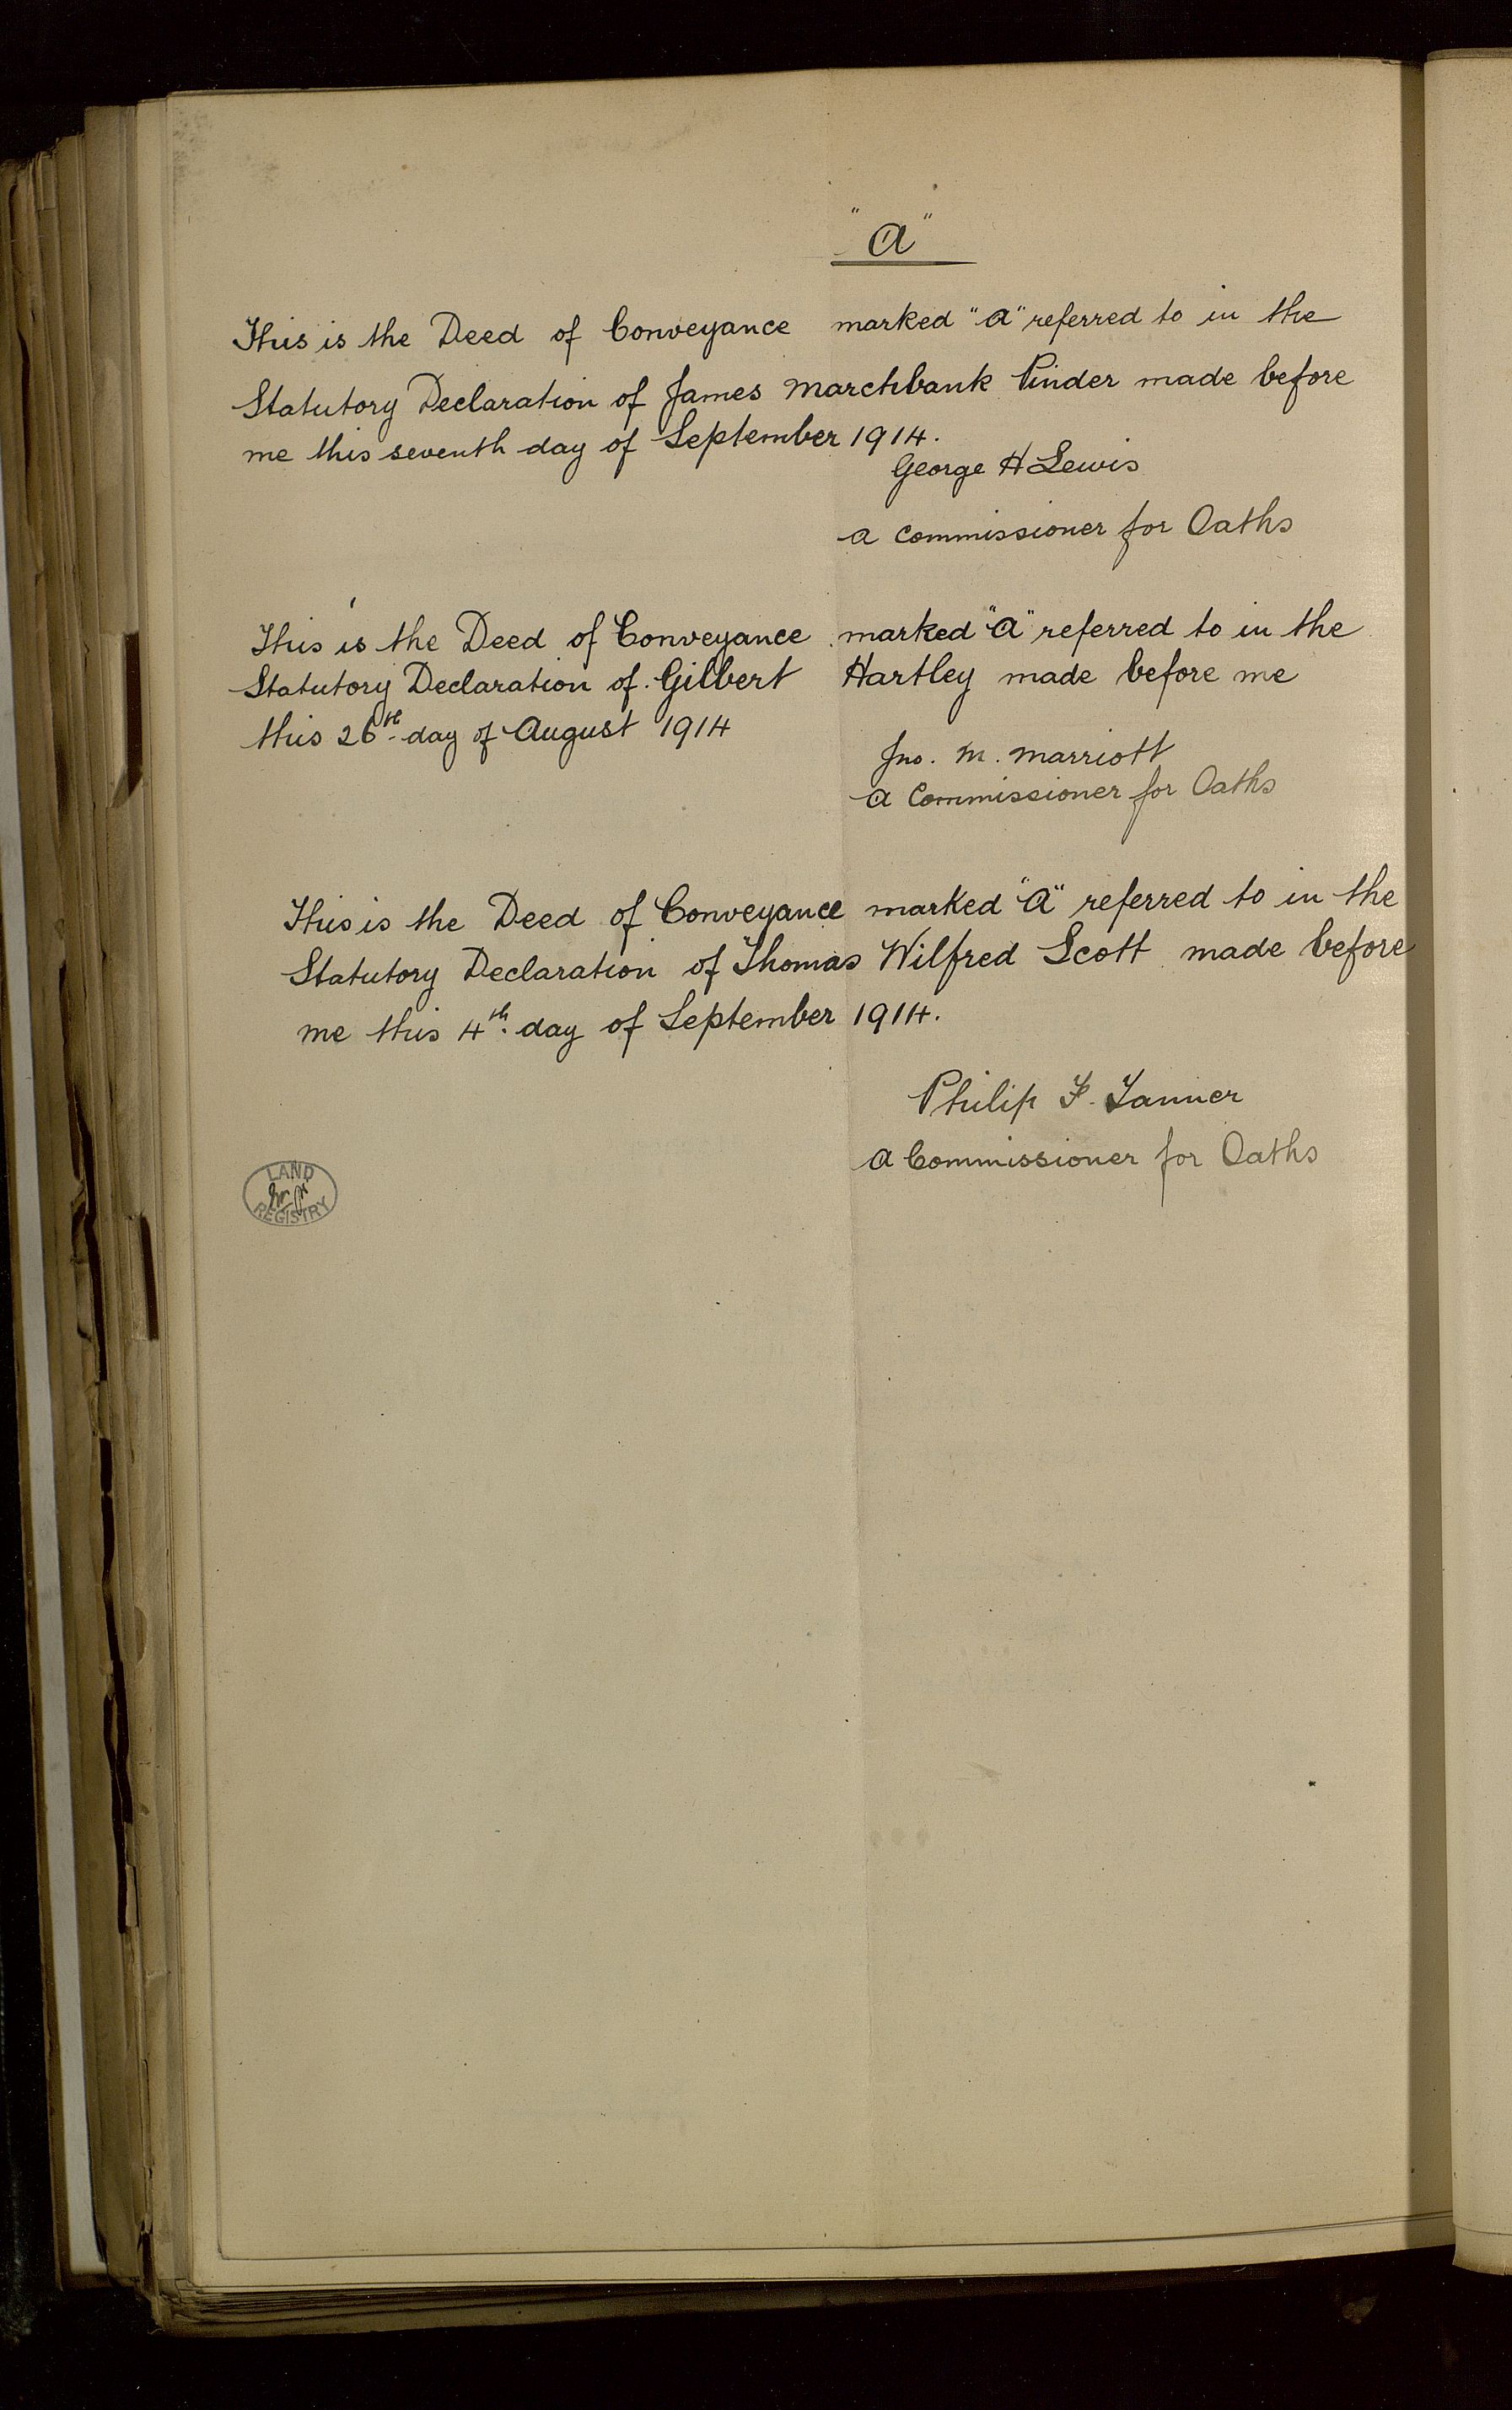 "A"
This is the Deed of Conveyance marked "A" referred to in the
Statutory Declaration of James Marchbank Pinder made before
me this seventh day of September 1914.
George H Lewis
a Commissioner for Oaths
This is the Deed of Conveyance marked "A" referred to in the
Statutory Declaration of Gilbert Hartley made before me
this 26th day of August 1914
Jno. M. Marriott
a Commissioner for Oaths
This is the Deed of Conveyance marked "A" referred to in the
Statutory Declaration of Thomas Wilfred Scott made before
me this 4th day of September 1914.
Philip F. Tanner
a Commissioner for Oaths
LAND
REGISTRY